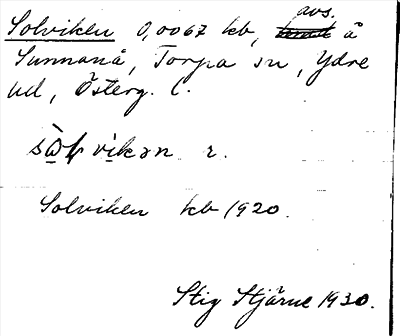 Solviken 0,0067 kb, avs. å
Sunnanå, Torpa sn, Ydre
hd, Österg. l.
Solviken kb 1920.
Stig Stjärne 1930.